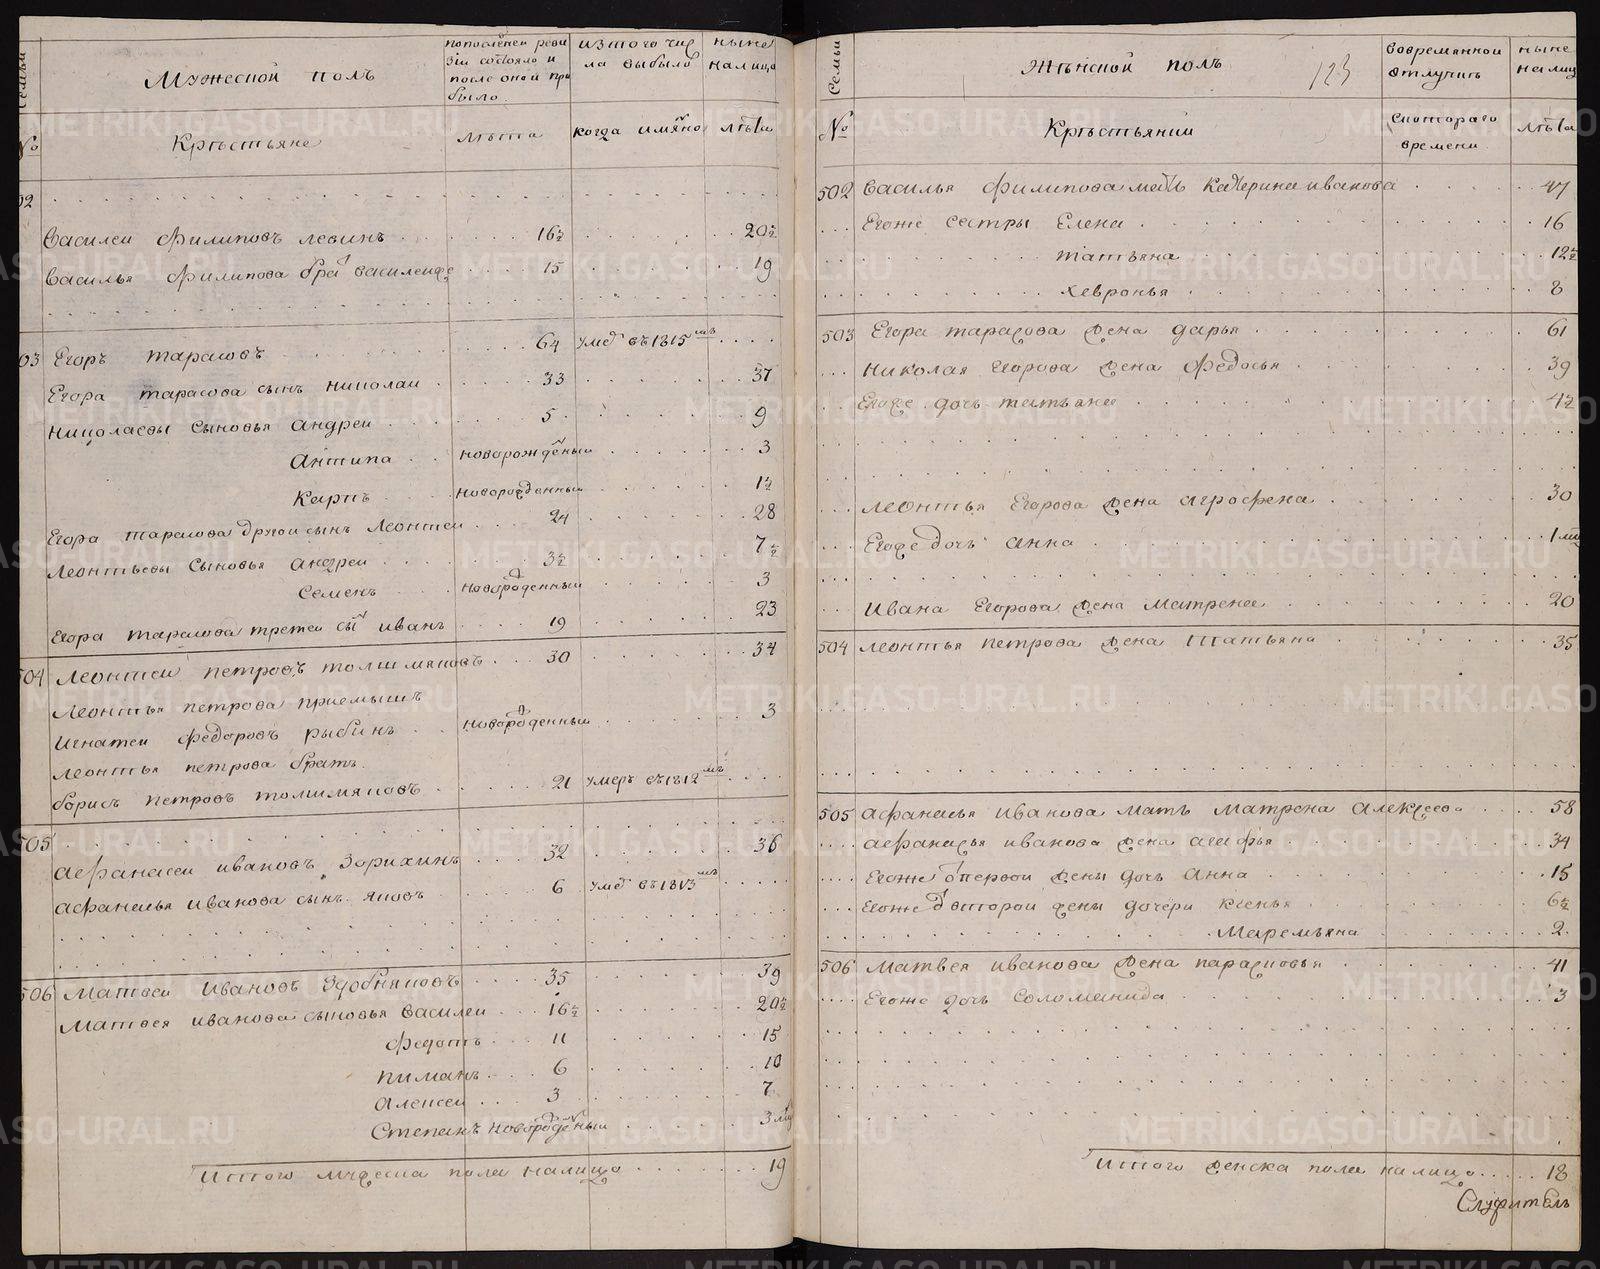 Семьи
Мужеской полъ
по последней реви
зіи состояло и
после оной при
было.
изтого чис
ла выбыло
ныне
налицо
№
Крестьяне
лѣта
когда имяно
лѣта
02
Василеи Филиповъ левинъ 16½ 20½
Василья Филипова бра василеиже 15 19
03 Егоръ тарасовъ 64 умер въ 1815мъ
Егора тарасова сынъ николаи 33 37
Николаевы сыновья андреи 5 9
Антипа новорожденыи 3
Карпъ новорожденныи 1½
Егора тарасова другои сынъ Леонтеи 24 28
Леонтьевы сыновья андреи 3½ 7½
Семенъ новорожденныи 3
Егора тарасова третеи сы иванъ 19 23
504 Леонтеи петровъ толшмяковъ 30 34
Леонтья петрова приемышъ
Игнатеи федоровъ рыбинъ новорожденныи 3
Леонтья петрова братъ
борисъ петровъ толшмяковъ 21 умеръ въ 1812мъ
505
Афанасеи ивановъ Зорихинъ 32 36
Афанасья иванова сынъ яковъ 6 умер въ 1813мъ
506 Матвеи Ивановъ Здобняковъ 35 39
Матвея иванова сыновья Василеи 16½ 20½
Федотъ 11 15
пиманъ 6 10
Алексеи 3 7
Степанъ новорожденыи 3 мц
Итого мужеска пола налицо 19
Семьи
Женской полъ
123
Вовремянной
отлучкѣ
ныне
налиц
№
Крестьянки
скотораго
времени
лѣта
502 Василья Филипова мать Катерина иванова 47
Егоже сестры Елена 16
татьяна 12½
хевронья 8
503 Егора тарасова жена дарья 61
Николая егорова жена Федосья 39
Егоже дочь татьяна 4½
Леонтья Егорова жена агрофена 30
Егоже дочь анна 1 мц
Ивана Егорова жена Матрена 20
504 Леонтья петрова жена Татьяна 35
505 Афанасья иванова мать Матрена алексеева 58
Афанасья иванова жена агафья 34
Егоже от первои жены дочь анна 15
Егоже от второи жены дочери ксенья 6½
Маремьяна 2
506 Матвея иванова жена парасковья 41
Егоже дочь Соломанида 3
Итого женска пола налицо 18
Служитель
METRIKI.GASO-URAL.RU